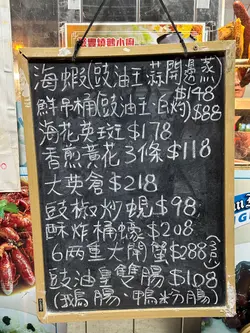 海蝦(豉油王.蒜開邊蒸)
$148
鮮吊桶(豉油王.白灼)$88
海花英斑 $178
香煎黃花3條$118
大英倉 $218
豉椒炒蜆 $98
酥炸桶蠔 $208
6両重大開蟹$288
豉油皇雙腸 $108
(鵝腸、鴨水腸)